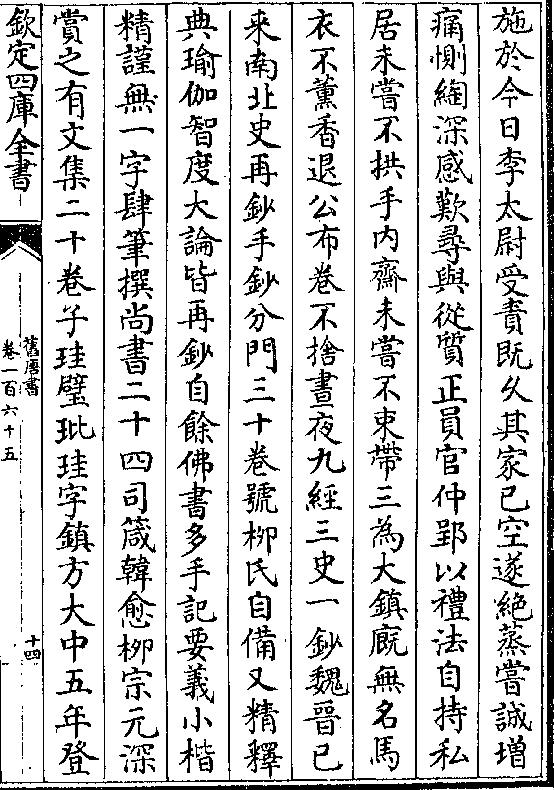 施於今日李太尉受責既乆其家已空遂絶蒸嘗誠増
痛惻綯深感歎尋與從質正員官仲郢以禮法自持私
居未嘗不拱手内齋未嘗不束帶三為大鎮廐無名馬
衣不薰香退公布卷不捨晝夜九經三史一鈔魏晉已
來南北史再鈔手鈔分門三十卷號栁氏自備又精釋
典瑜伽智度大論皆再鈔自餘佛書多手記要義小楷
精謹無一字肆筆撰尚書二十四司箴韓愈栁宗元深
賞之有文集二十卷子珪璧玭珪字鎮方大中五年登
欽定四庫全書
舊唐書
卷一百六十五
十四